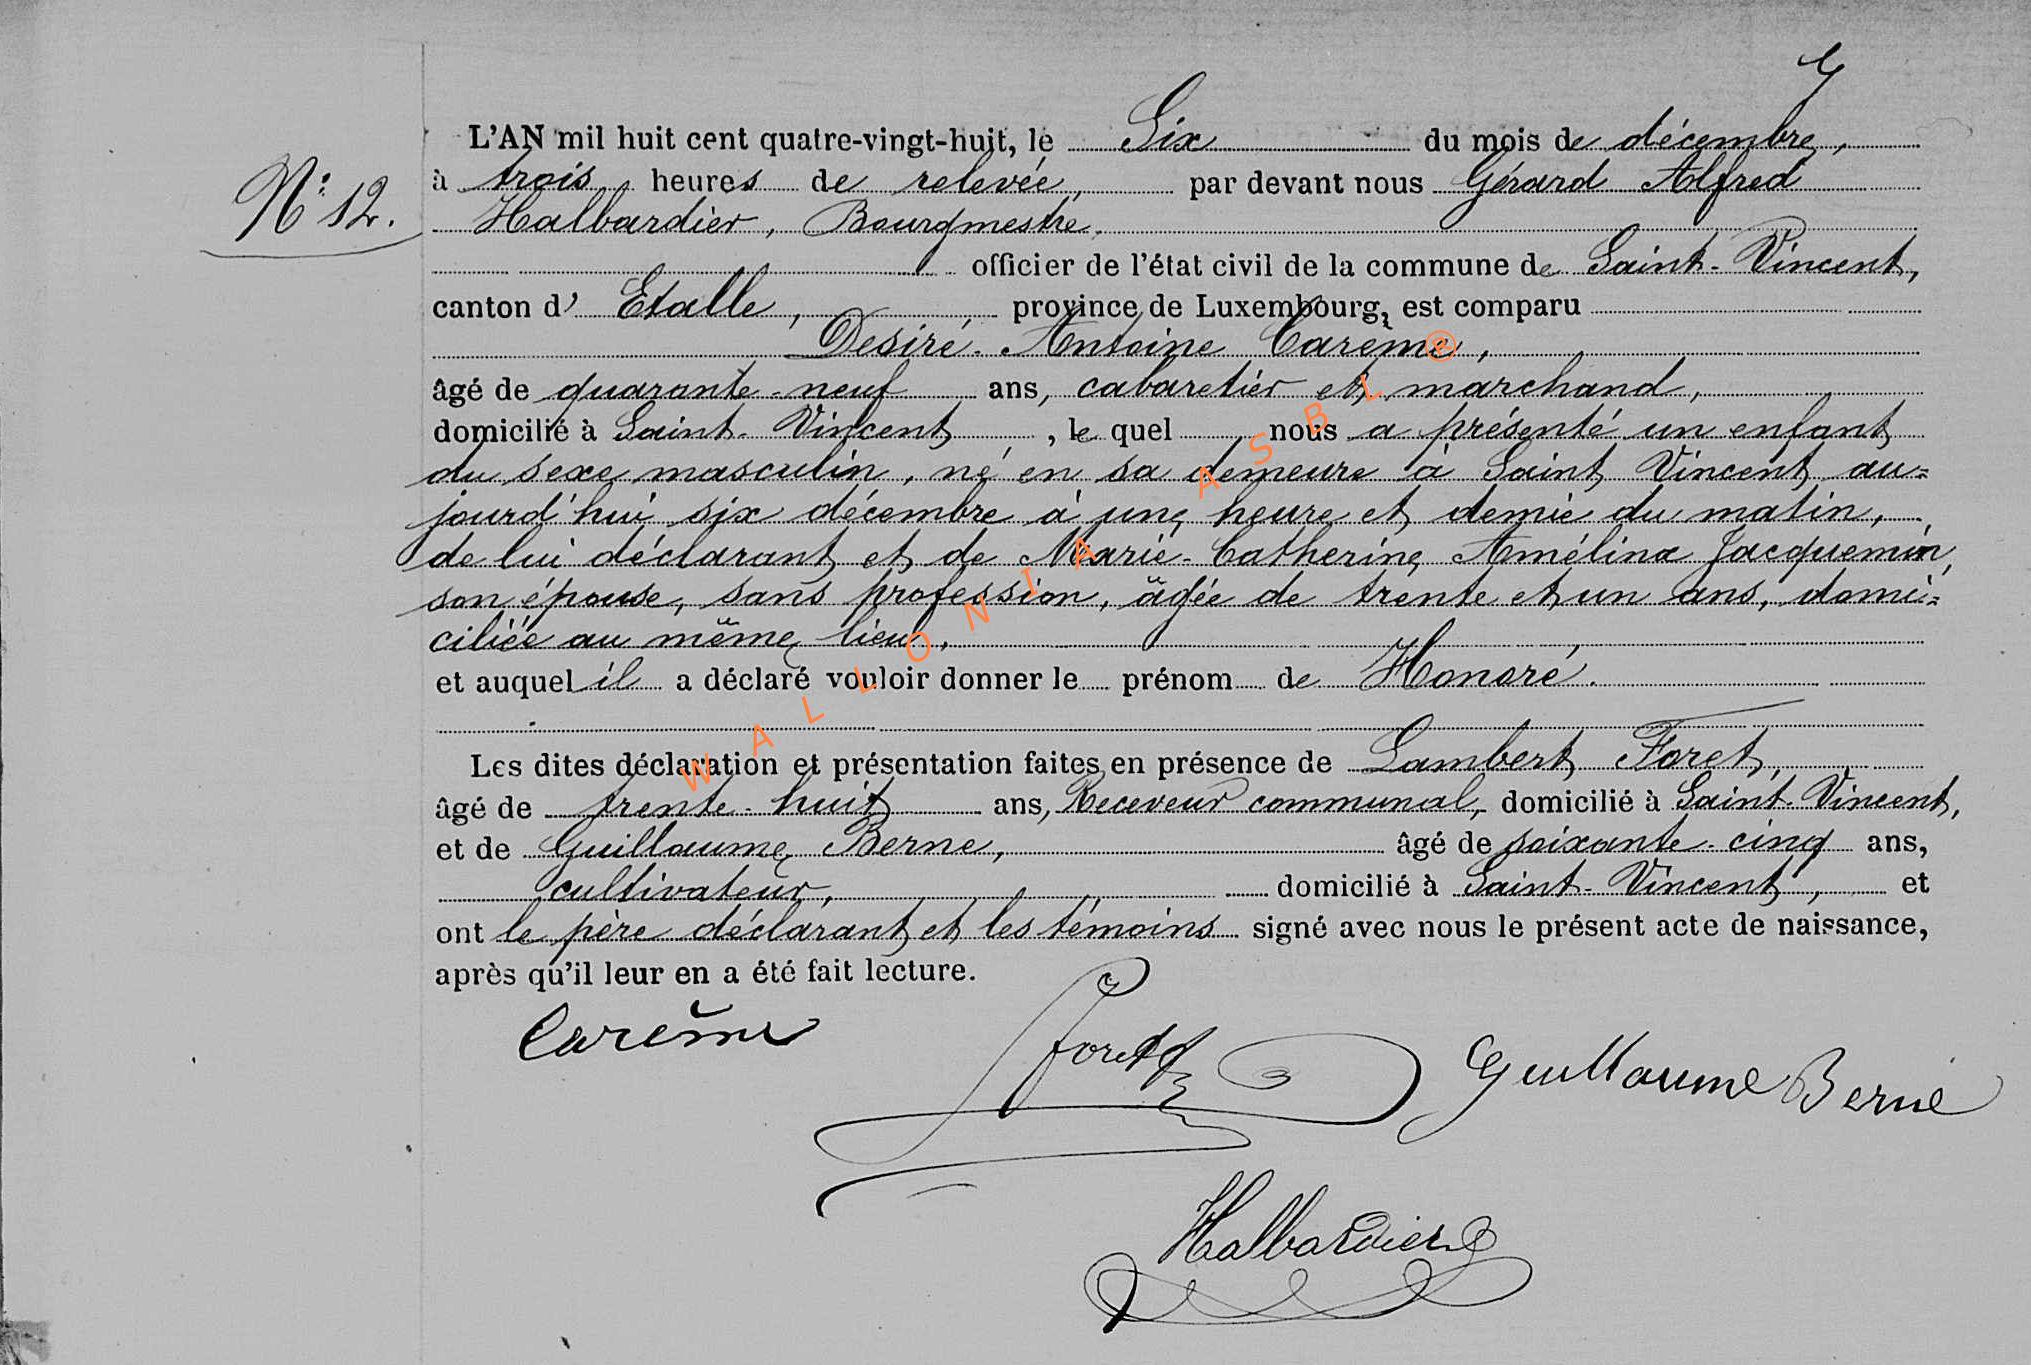 7
L'AN mil huit cent quatre-vingt-huit, le Six du mois de décembre,
N° 12.
à trois heures de relevée, par devant nous Gérard Alfred
Halbardier, Bourgmestre,
officier de l'état civil de la commune de Saint-Vincent,
canton d' Etalle, province de Luxembourg, est comparu
Desiré-Antoine Carème,
âgé de quarante-neuf ans, cabaretier et marchand,
domicilié à Saint-Vincent, le quel nous a présenté un enfant
du sexe masculin, né en sa demeure à Saint Vincent au=
jourd'hui six décembre à une heure et demie du matin,
de lui déclarant et de Marie-Catherine Amélina Jacquemin,
son épouse, sans profession, âgée de trente et un ans, domi=
ciliée au même lieu,
et auquel il a déclaré vouloir donner le prénom de Honoré.
Les dites déclaration et présentation faites en présence de Lambert Foret,
âgé de trente-huit ans, Receveur communal, domicilié à Saint-Vincent,
et de Guillaume Berne, âgé de soixante-cinq ans,
cultivateur, domicilié à Saint-Vincent, et
ont le père déclarant et les témoins signé avec nous le présent acte de naissance,
après qu'il leur en a été fait lecture.
Carême
Foret
Guillaume Berne
Halbardier
WALLONIA ASBL ®